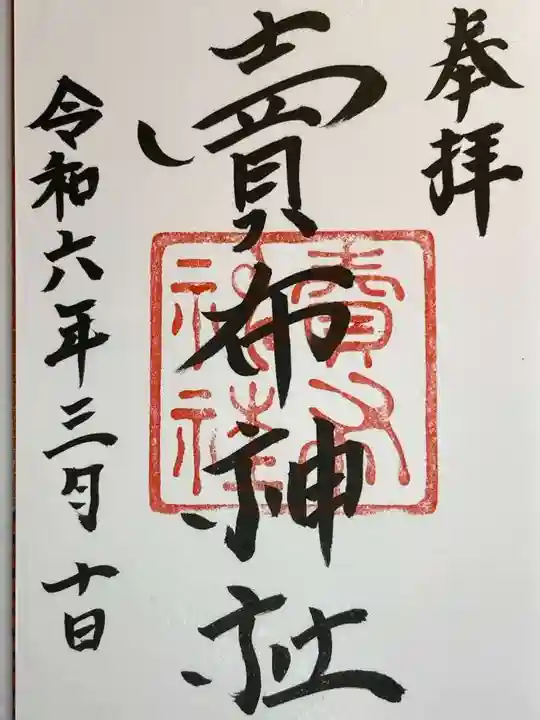 奉拝
賣布神社
賣布
神社
令和六年三月十日